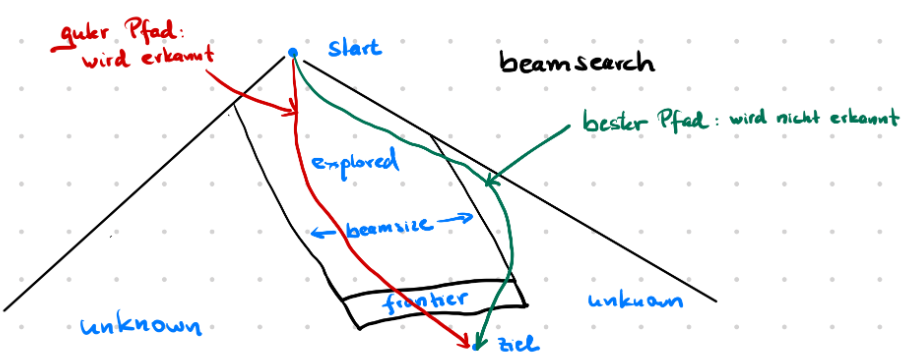 guter Pfad:
wird erkannt
Start
beamsearch
bester Pfad: wird nicht erkannt
explored
beamsize
frontier
unknown
unknown
Ziel